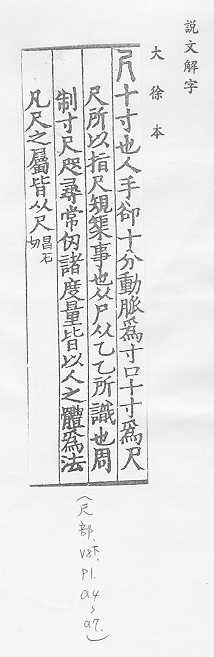 説文解字
大徐本
尺十寸也人手卻十分動脈爲寸口十寸爲尺
尺所以指尺規榘事也从尸从乙乙所識也周
制寸尺咫尋常仞諸度量皆以人之體爲法
凡尺之屬皆从尺昌石切
(尺部、V8下、P1.a4、a7.)